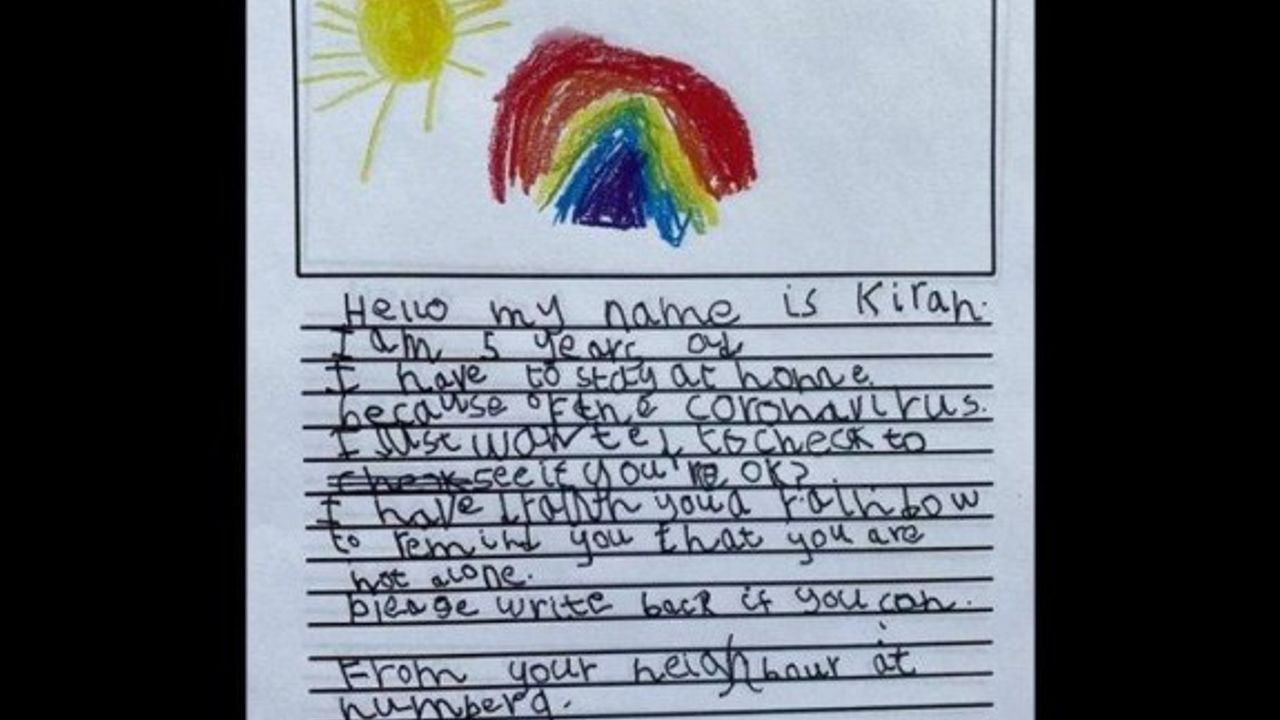 Hello my name is Kiran.
I am 5 years old
I have to stay at home
because of the coronavirus.
I Just wanted to check to
see if you're OK?
I have you a rainbow
to remind you that you are
not alone.
please write back if you can.
From your neighbour at
number 9.